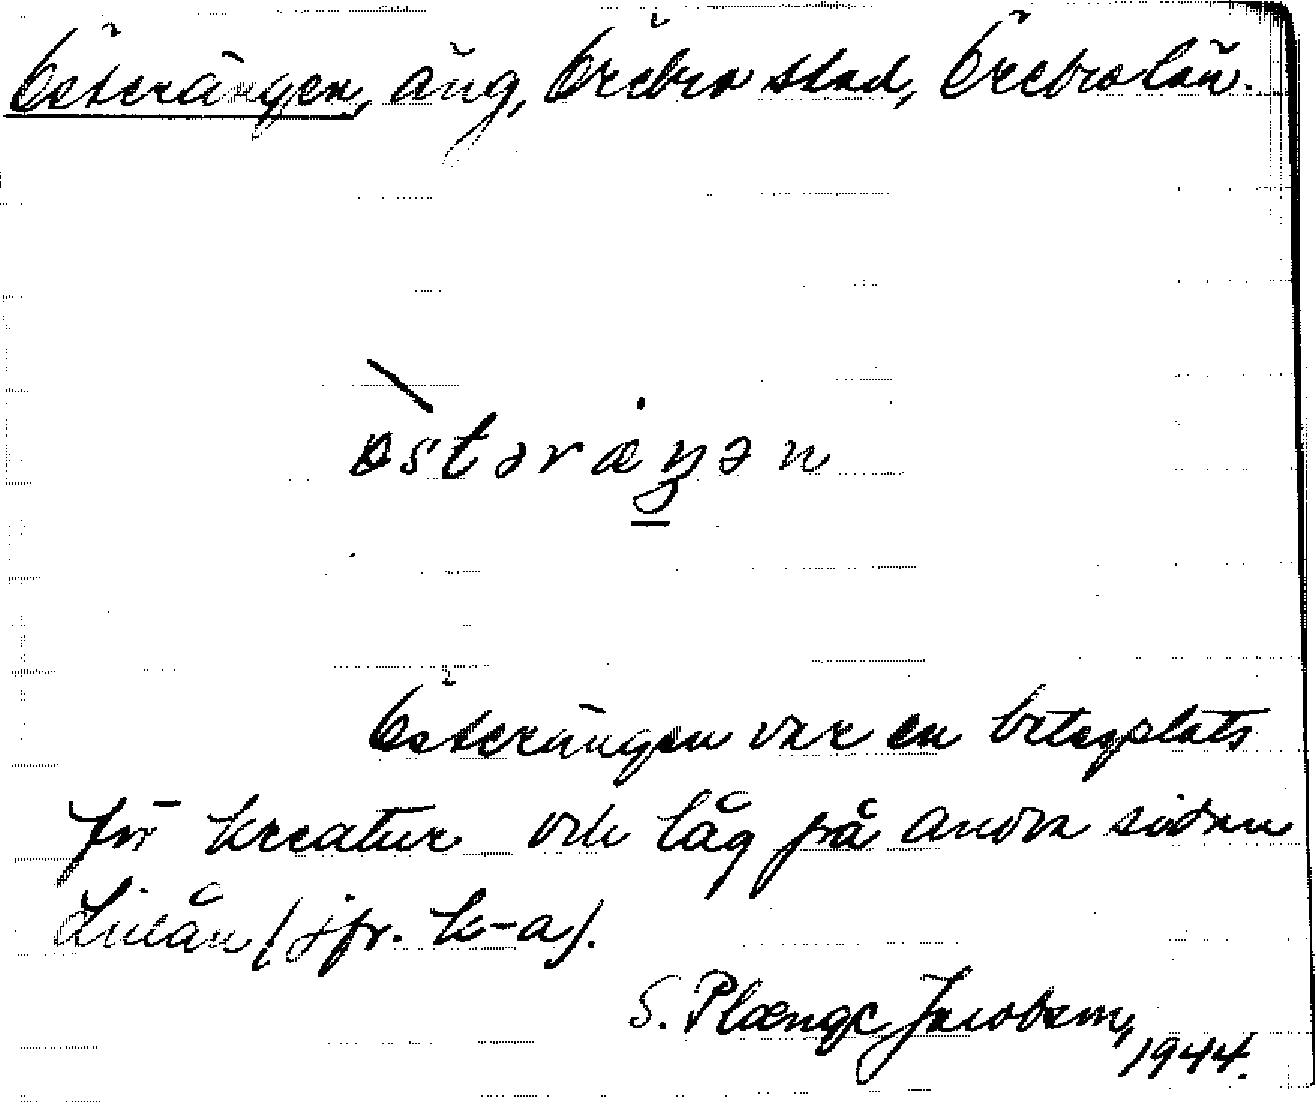 Österängen, äng, Örebro stad, Örebro län.
østəræŋən
Österängen var en betesplats
för kreatur och låg på andra sidan
Lillån (jfr. k-a).
S. Plænge Jacobson,
1944.